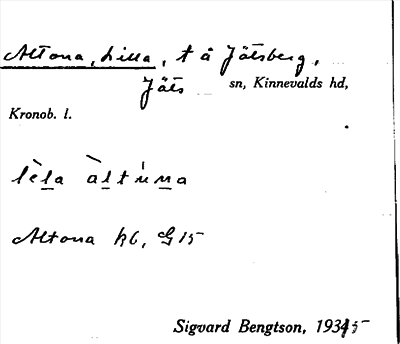 Altona, Lilla, t å Jätsberg,
Jäts sn, Kinnevalds hd,
Kronob. l.
lèla àltúna
Altona hb, G 15
Sigvard Bengtson, 1935